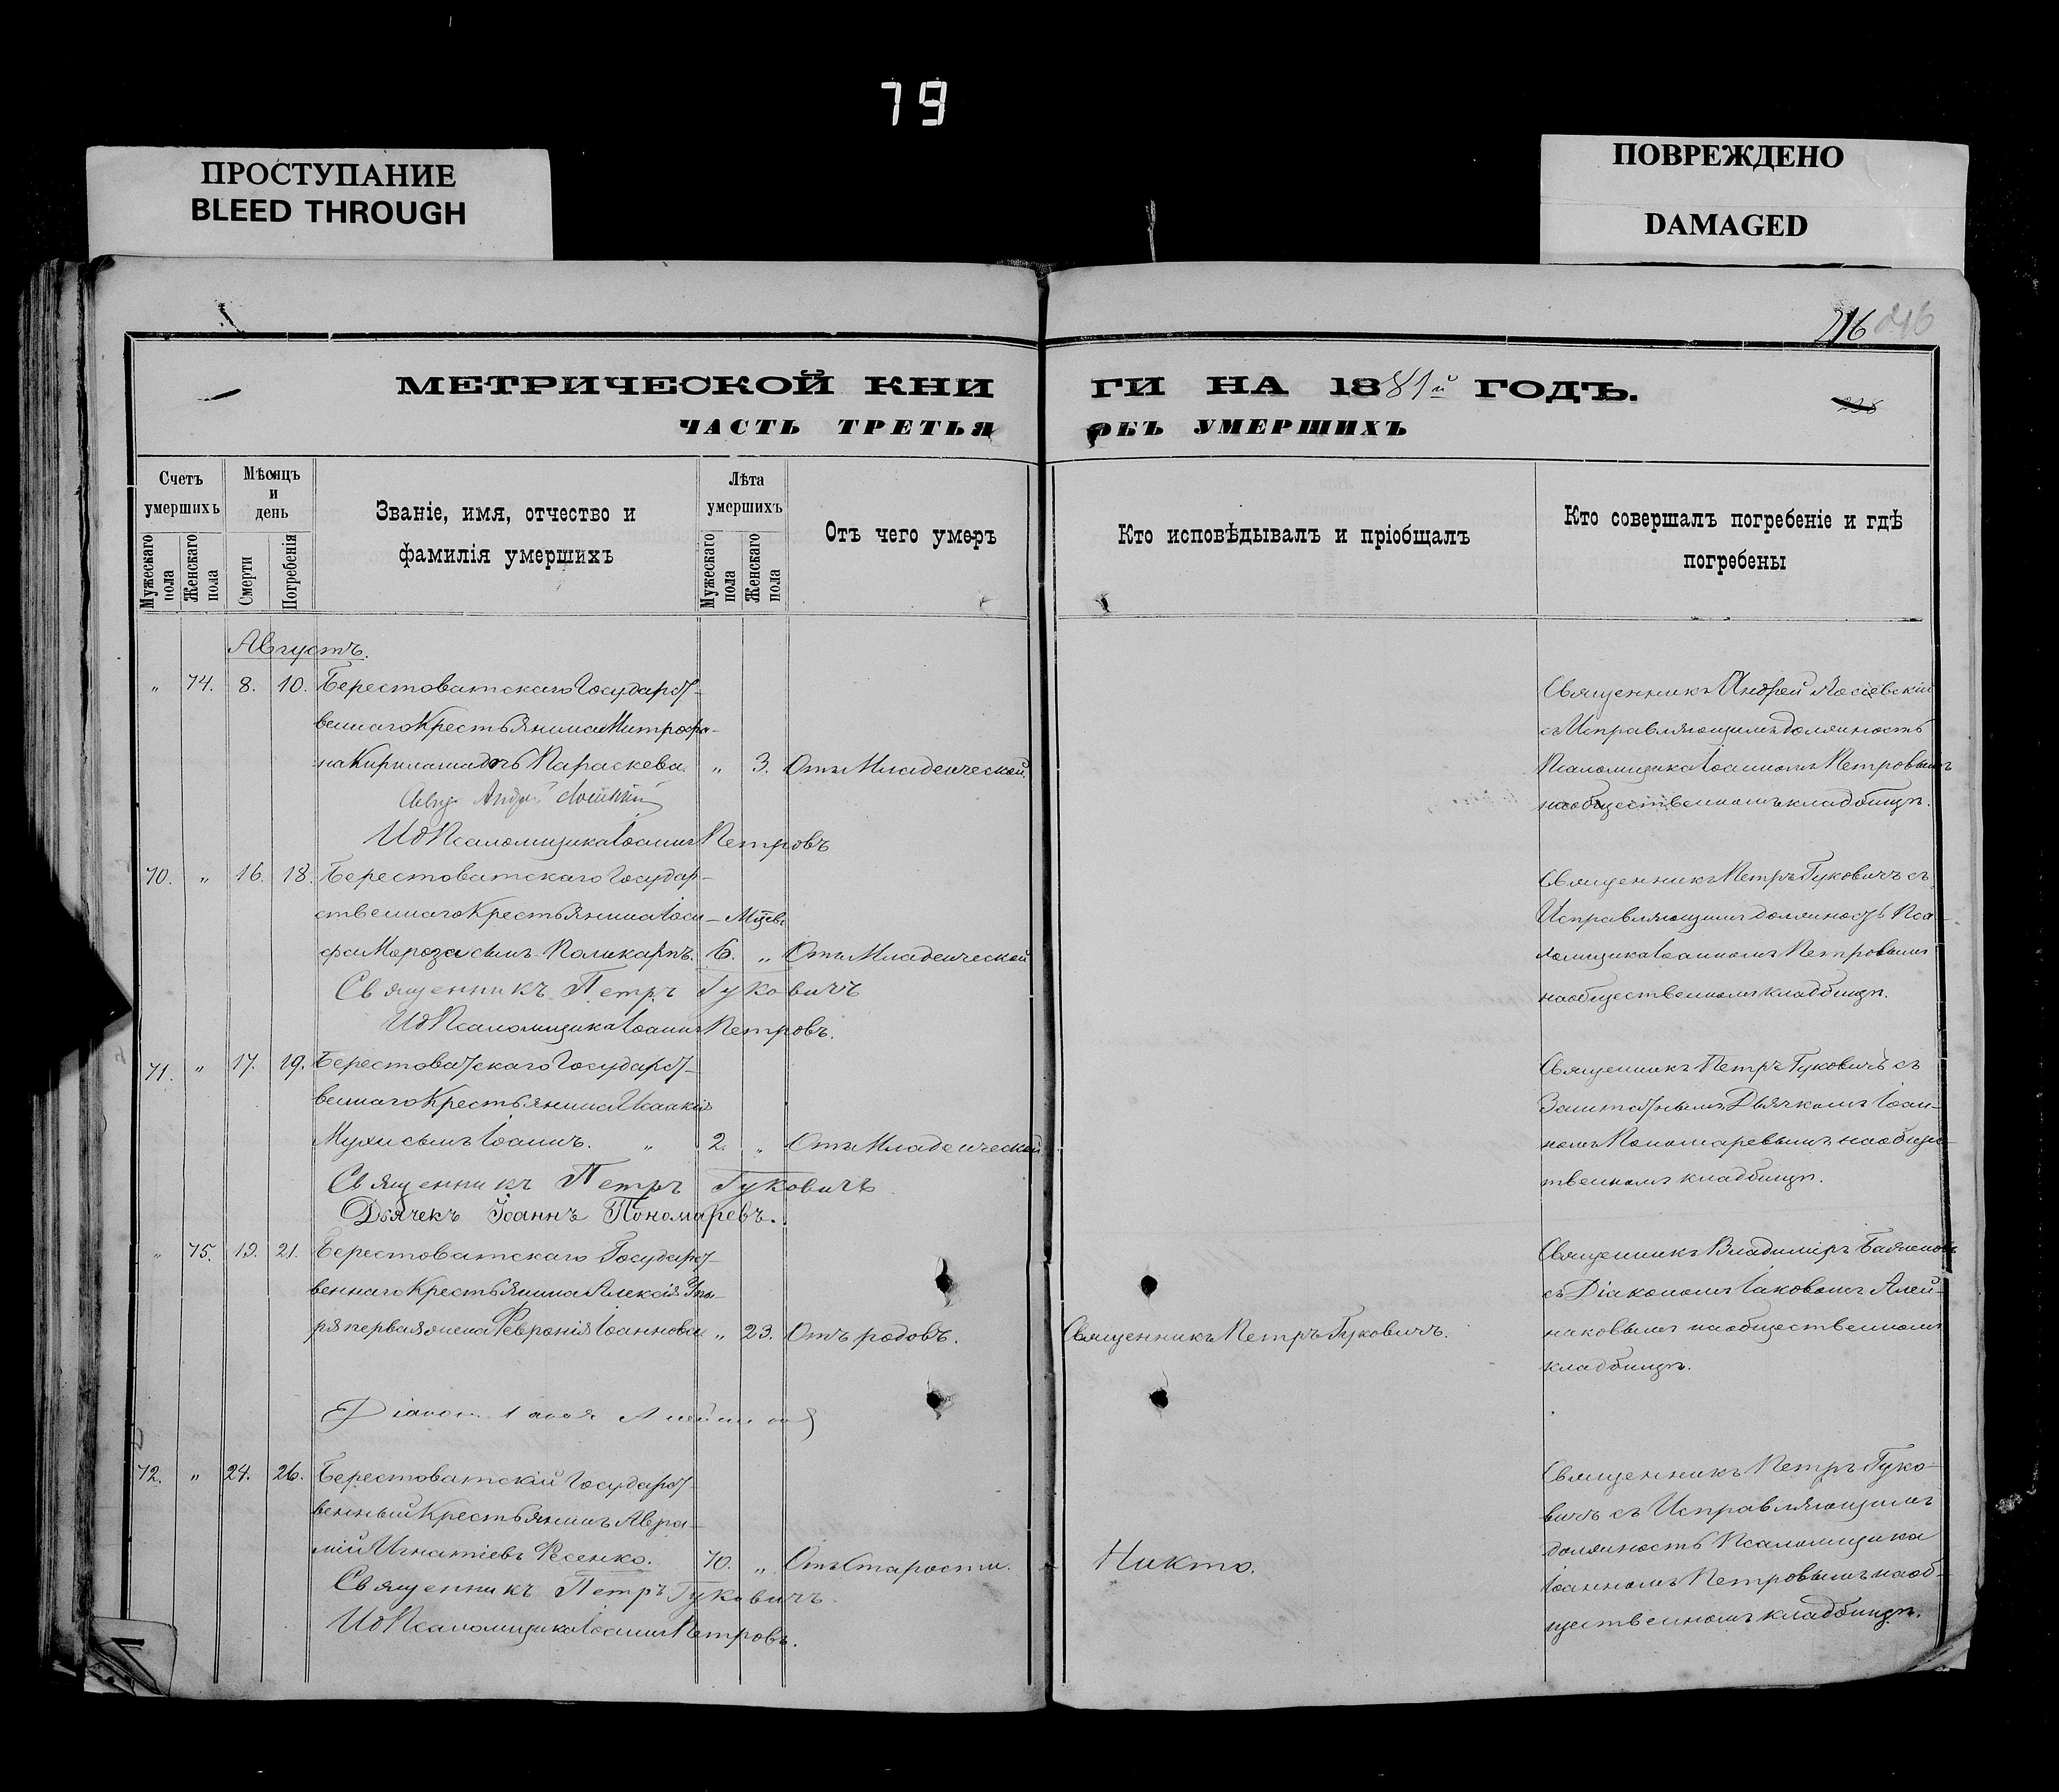 79
ПРОСТУПАНИЕ
BLEED THROUGH
ПОВРЕЖДЕНО
DAMAGED
216 216
МЕТРИЧЕСКОЙ КНИ ГИ НА 1881й ГОДЪ.
ЧАСТЬ ТРЕТЬЯ ОБЪ УМЕРШИХЪ
Счетъ умершихъ
Мужескаго пола
Женскаго пола
Мѣсяцъ и день
Смерти
Погребенія
Званіе, имя, отчество и
фамилія умершихъ
Лѣта умершихъ
Мужескаго пола
Женскаго пола
Отъ чего умеръ
Кто исповѣдывалъ и пріобщалъ
Кто совершалъ погребеніе и гдѣ
погребены
Августъ.
" 74. 8. 10. Берестоватскаго Государст-
веннаго Крестьянина Митрофа-
на Кирилаша дочь Параскева. " 3. Отъ Младенческой.
Андрей
ИдПсаломщика Іоаннъ Петровъ
Священникъ Андрей
съ Исправляющимъ должность
Псаломщика Іоанномъ Петровымъ
на общественномъ кладбищѣ.
70. " 16. 18. Берестоватскаго Государ-
ственнаго Крестьянина Іоси- Мцевъ
фа Мороза сынъ Поликарпъ. 6. " Отъ Младенческой
Священникъ Петръ Гуковичъ
ИдПсаломщика Іоаннъ Петровъ.
Священникъ Петръ Гуковичъ съ
Исправляющимъ должность Пса-
ломщика Іоанномъ Петровымъ
на общественномъ кладбищѣ.
71. " 17. 19. Берестоватскаго Государст-
веннаго Крестьянина Исаакія
Мухи сынъ Іоаннъ. " 2. " Отъ Младенческой
Священникъ Петръ Гуковичъ
Дьячекъ Іоаннъ Пономаревъ.
Священникъ Петръ Гуковичъ съ
Заштатнымъ Дьячкомъ Іоан-
номъ Пономаревымъ на общес-
твенномъ кладбищѣ.
" 75. 19. 21. Берестоватскаго Государст-
веннаго Крестьянина Алексія
первая жена Февронія Іоаннова " 23. Отъ родовъ.
Священникъ Петръ Гуковичъ.
Діаконъ Іаковъ Алейниковъ
Священникъ Владиміръ
съ Діакономъ Іаковомъ Алей-
никовымъ на общественномъ
кладбищѣ.
72. " 24. 26. Берестоватскій Государст-
венный Крестьянинъ Авра-
мій Игнатіевъ Фесенко. 70. " Отъ Старости.
Никто.
Священникъ Петръ Гуковичъ
ИдПсаломщика Іоаннъ Петровъ.
Священникъ Петръ Гуко-
вичъ съ Исправляющимъ
должность Псаломщика
Іоанномъ Петровымъ на об-
щественномъ кладбищѣ.